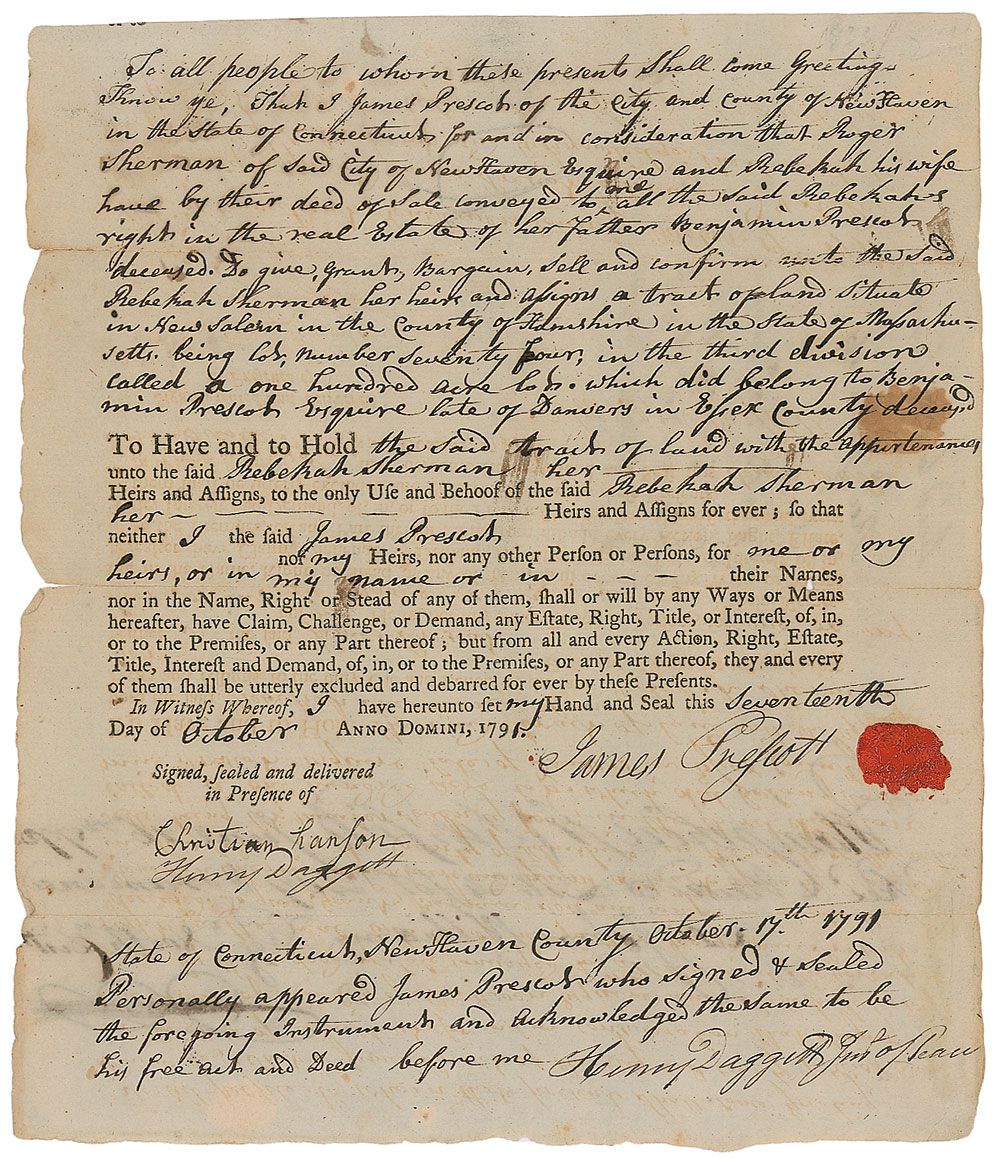 To all people to whom these presents Shall come Greeting.
Know ye, That I James Prescot of the City and County of New Haven
in the State of Connecticut, for and in consideration that Roger
Sherman of Said City of New Haven Esquire and Rebekah his wife
have by their deed of Sale conveyed to me all the said Rebekahs
right in the real Estate of her Father Benjamin Prescot
deceased. Do give, Grant, Bargain, Sell and confirm unto the said
Rebekah Sherman her heirs and aſsigns a tract of land Situate
in New Salem in the County of Hamshire in the State of Maſsachu-
setts. being lot, number Seventy four, in the third division
called a one hundred acre lot. which did belong to Benja-
min Prescot Esquire late of Danvers in Eſsex County deceasd
To Have and to Hold the said tract of land with the appurtenances
unto the said Rebekah Sherman her
Heirs and Aſſigns, to the only Uſe and Behoof of the said Rebekah Sherman
her - — — — — Heirs and Aſſigns for ever ; so that
neither I the said James Prescot
nor my Heirs, nor any other Perſon or Perſons, for me or my
heirs, or in my name or in - - - their Names,
nor in the Name, Right or Stead of any of them, ſhall or will by any Ways or Means
hereafter, have Claim, Challenge, or Demand, any Eſtate, Right, Title, or Intereſt, of, in,
or to the Premiſes, or any Part thereof ; but from all and every Action, Right, Eſtate,
Title, Intereſt and Demand, of, in, or to the Premiſes, or any Part thereof, they and every
of them ſhall be utterly excluded and debarred for ever by theſe Preſents.
In Witneſs Whereof, I have hereunto ſet my Hand and Seal this Seventeenth
Day of October ANNO DOMINI, 1791.
James Preſcott
Signed, ſealed and delivered
in Preſence of
Christian Hanson
Henry Daggett
State of Connecticut, New Haven County October 17.th 1791
Personally appeared James Prescot who Signed & Sealed
the foregoing Instrument and acknowledged the Same to be
his free act and Deed before me Henry Daggett Jus of Peace